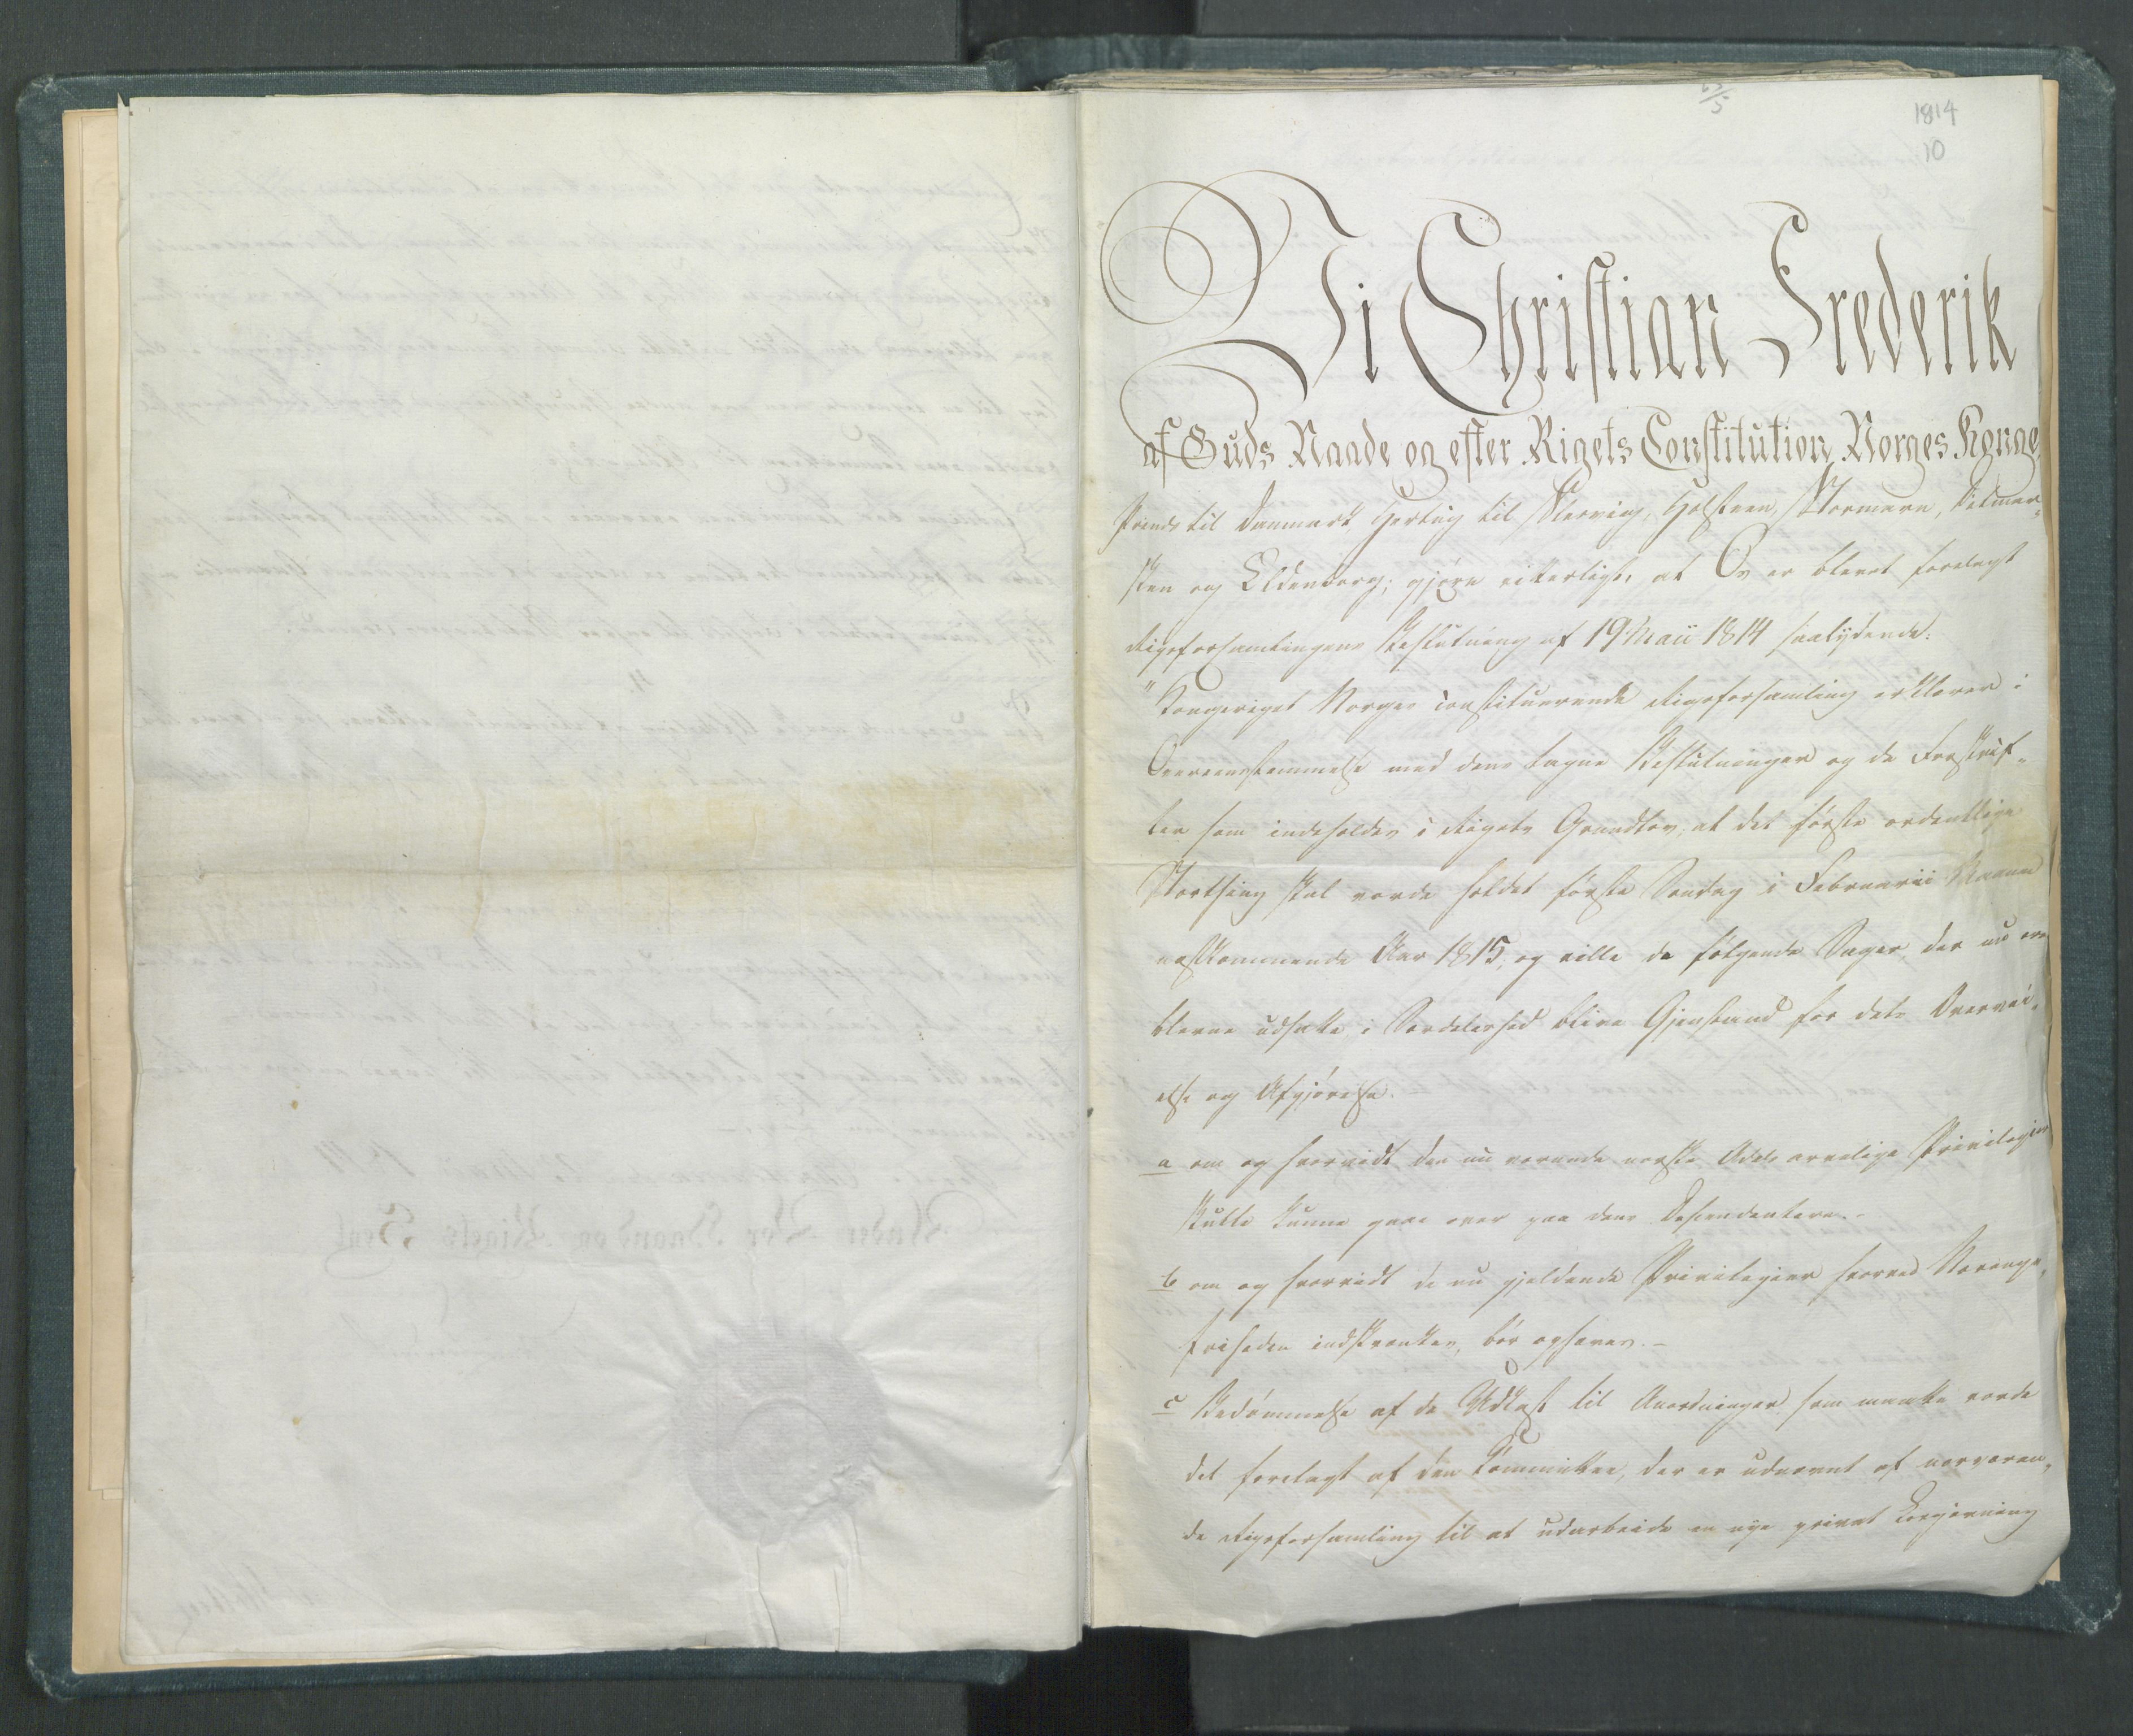 22/5
1814
10
Vi Christian Frederik
af Guds Naade og efter Rigets Constitution Norges Konge,
Prinds til Danmark, Hertug til Slesvig, Holsteen, Stormarn, Ditmar-
sken og Oldenborg; gjøre vitterligt, at Os er blevet forelagt
Rigsforsamlingens Beslutning af 19 Maii 1814 saalydende:
"Kongeriget Norges constituerende Rigsforsamling erklærer i
Overeensstemmelse med dens tagne Beslutninger og de Forskrif-
ter som indeholdes i Rigets Grundlov, at det første ordentlige
Storthing skal vorde holdet første Søndag i Februarii Maaned
næstkommende Aar 1815, og ville de følgende Sager, der nu ere
blevne udsatte, i Særdeleshed blive Gjenstand for dets Overvei-
else og Afgjørelse.
a om og hvorvidt den nu værende norske Adels arvelige Privilegier
skulle kunne gaae over paa dens Descendentere.-
b om og hvorvidt de nu gjeldende Privilegier hvorved Nærings-
friheden indskrænkes, bør ophæves.-
c Bedømmelse af de Udkast til Anordninger som maatte vorde
det forelagt af den Committee, der er udnævnt af nærværen-
de Rigsforsamling til at udarbeide en nye privat Lovgivning